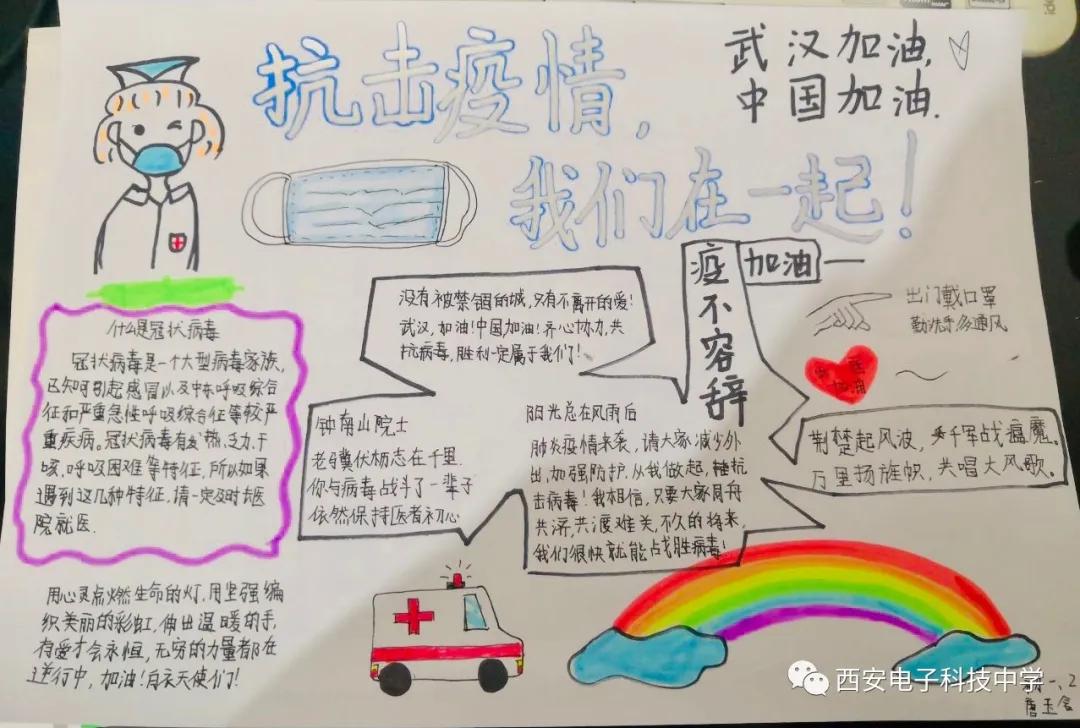 抗击疫情,
武汉加油,
中国加油.
我们在一起!
疫不容辞
加油一
出门戴口罩
勤洗手多通风
加油
没有被禁锢的城,只有不离开的爱!
武汉,加油!中国加油!齐心协力,共
抗病毒,胜利一定属于我们!
什么是冠状病毒
冠状病毒是一个大型病毒家族,
已知可引起感冒以及中东呼吸综合
征和严重急性呼吸综合征等较严
重疾病。冠状病毒有发热,乏力,干
咳,呼吸困难等特征,所以如果
遇到这几种特征,请一定及时去医
院就医.
钟南山院士
老骥伏枥志在千里.
你与病毒战斗了一辈子
依然保持医者初心
阳光总在风雨后
肺炎疫情来袭,请大家减少外
出,加强防护.从我做起,抗
击病毒!我相信,只要大家同舟
共济,共渡难关,不久的将来,
我们很快就能战胜病毒!
荆楚起风波,千军战瘟魔。
万里扬旌帜,共唱大风歌。
用心灵点燃生命的灯,用坚强编
织美丽的彩虹,伸出温暖的手,
有爱才会永恒,无穷的力量都在
逆行中,加油!白衣天使们!
西安电子科技中学
一、2